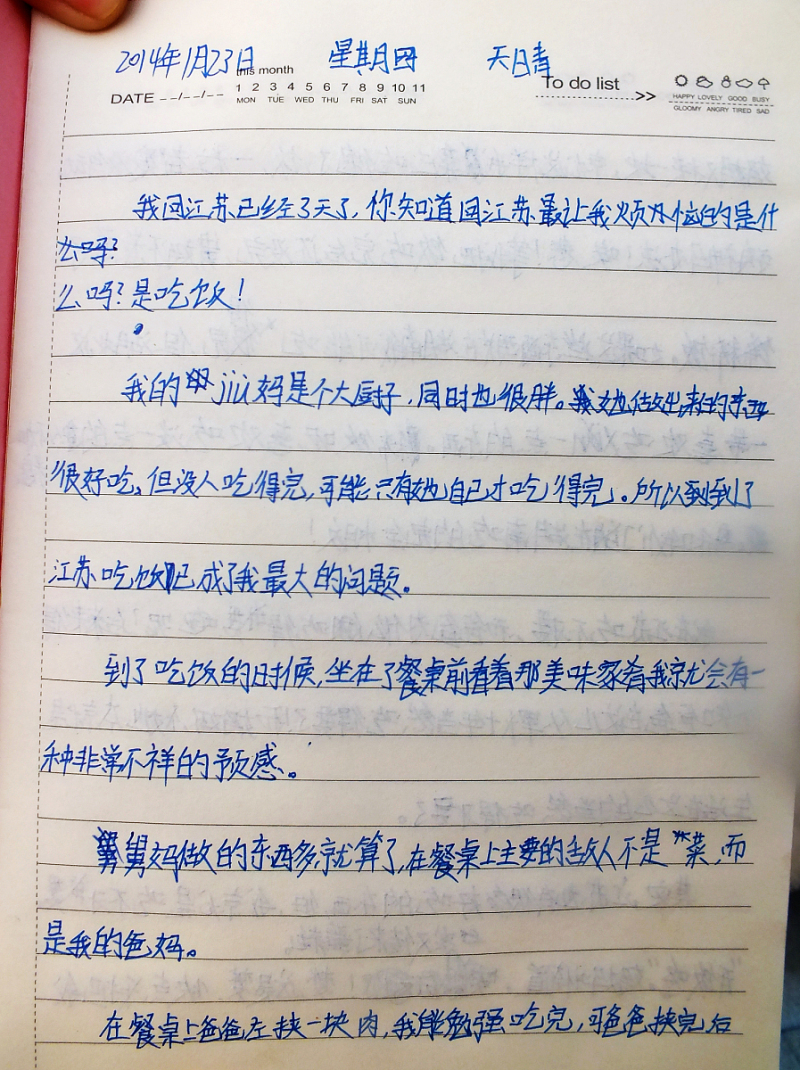 2014年1月23日 星期四 天晴
this month
To do list
1 2 3 4 5 6 7 8 9 10 11
DATE --/--/--
>>
MON TUE WED THU FRI SAT SUN
HAPPY LOVELY GOOD BUSY
GLOOMY ANGRY TIRED SAD
我回江苏已经3天了,你知道回江苏最让我烦恼的是什
么吗?
么吗?是吃饭!
我的jiù妈是个大厨子,同时也很胖。她做出来的东西
很好吃,但没人吃得完,可能只有她自己才吃得完。所以到到了
江苏吃饭已成了我最大的问题。
到了吃饭的时候,坐在了餐桌前看着那美味家肴我就会有一
种非常不祥的预感。
舅妈做的东西多就算了,在餐桌上主要的敌人不是菜,而
是我的爸妈。
在餐桌上爸爸左挟一块肉,我能勉强吃完,可爸爸挟完后